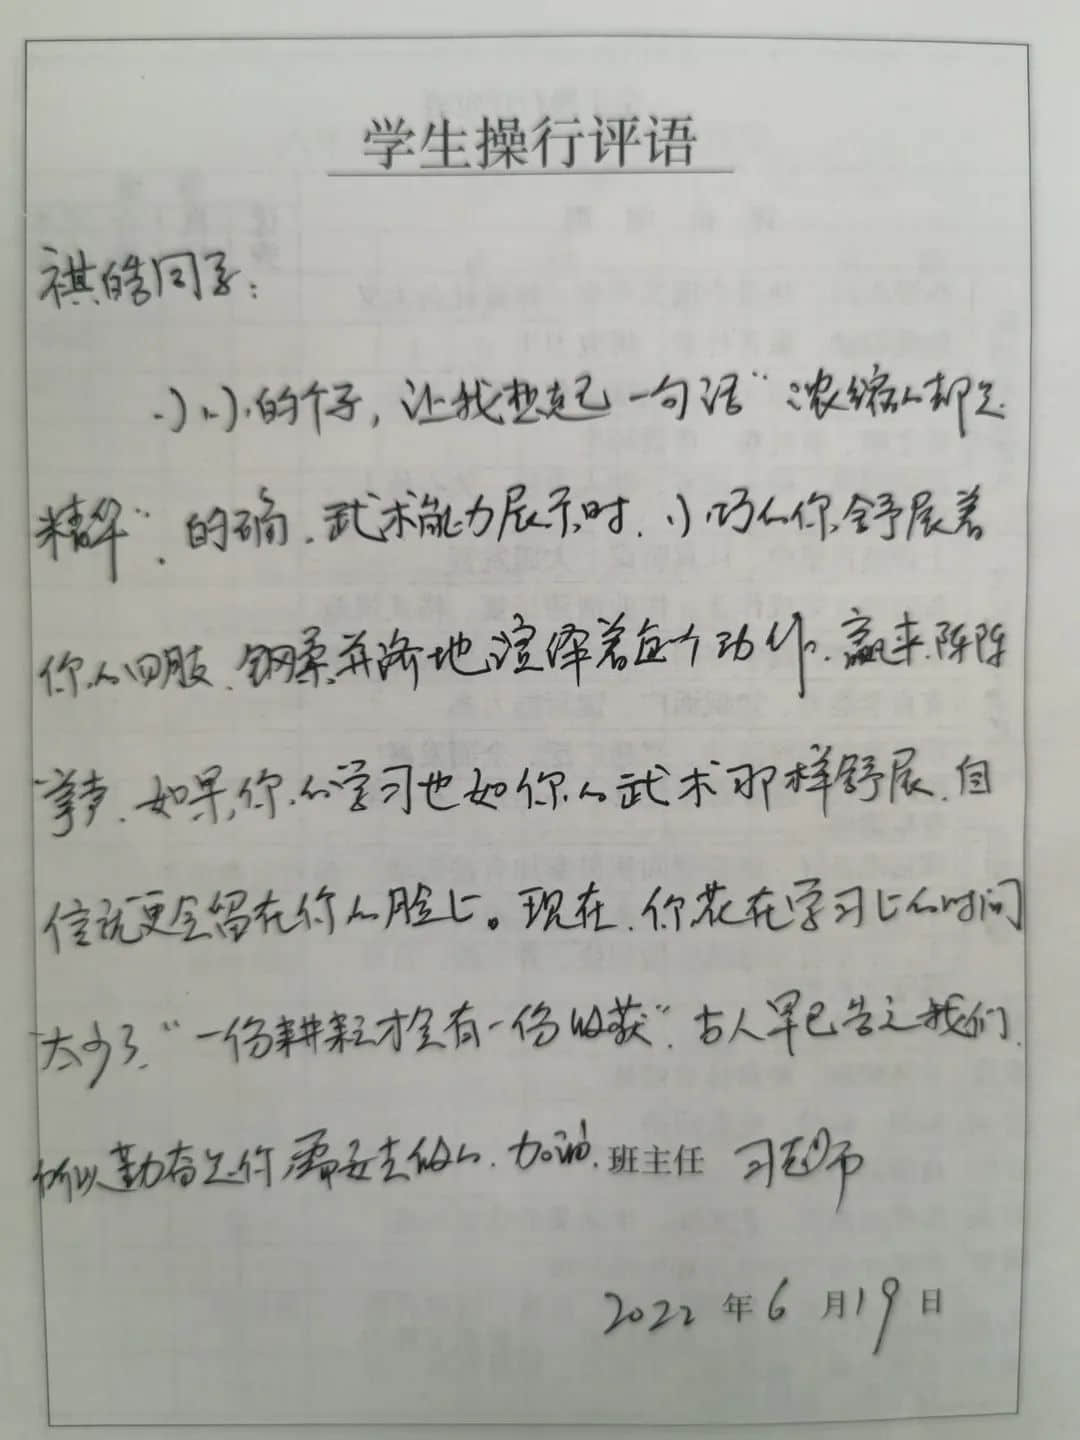 学生操行评语
祺皓同学：
小小的个子，让我想起一句话“浓缩的都是
精华”，的确，武术能力展示时，小巧的你舒展着
你的四肢，钢柔并济地演绎着每个动作，赢来阵阵
掌声，如果，你的学习也如你的武术那样舒展，自
信就更会留在你的脸上。现在，你花在学习上的时间
太少了，“一份耕耘才会有一份收获”，古人早已告之我们，
所以勤奋是你需要去做的，加油，班主任 习老师
2022年6月19日